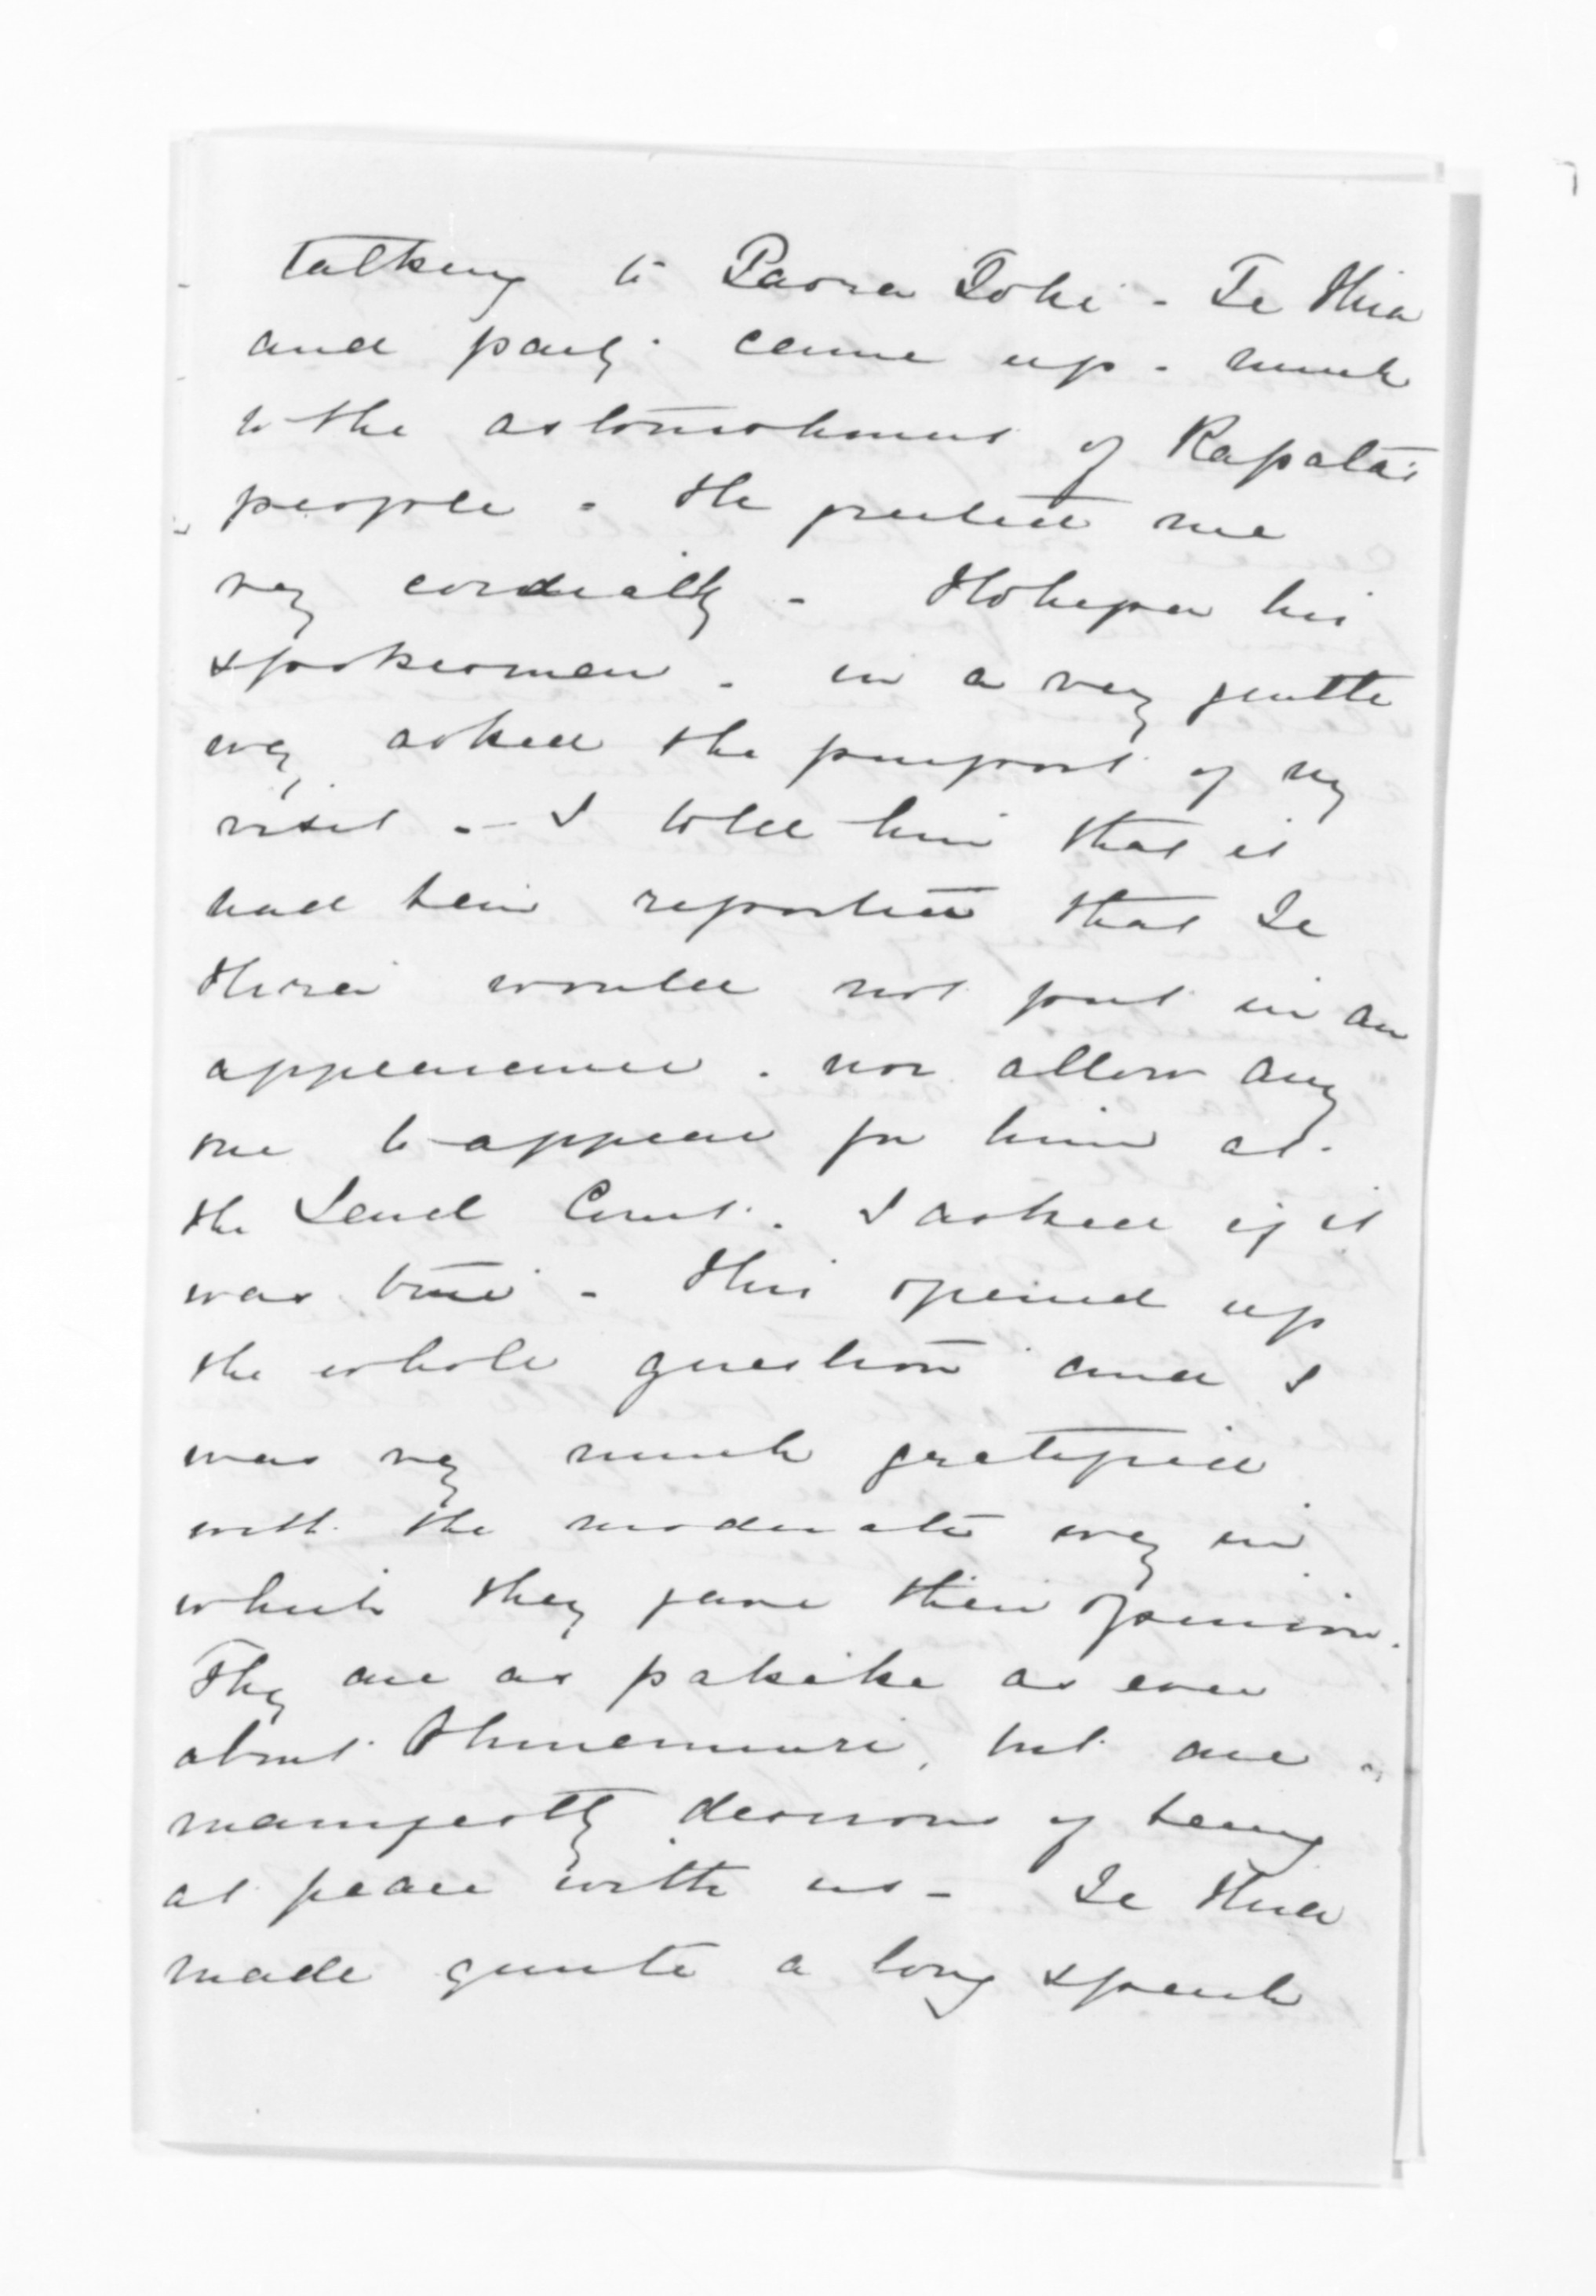 talking to Paora Toki - Te Hira
and party came up. much
to the astonishment of Rapata's
people - He greeted me
very cordially - Hohepa his
spokesman. in a very gentle
way asked the purport of my
visit - I told him that it
had been reported that Te
Hira would not put in an
appearance. nor allow any
one to appear for him at
the Land Court. I asked if it
was true - this opened up
the whole question and I
was very much gratified
with the moderate way in
which they gave their opinion.
They are as pakeke as ever
about Ohinemuri, but are
manifestly desirous of being
at peace with us - Te Hira
made quite a long speech